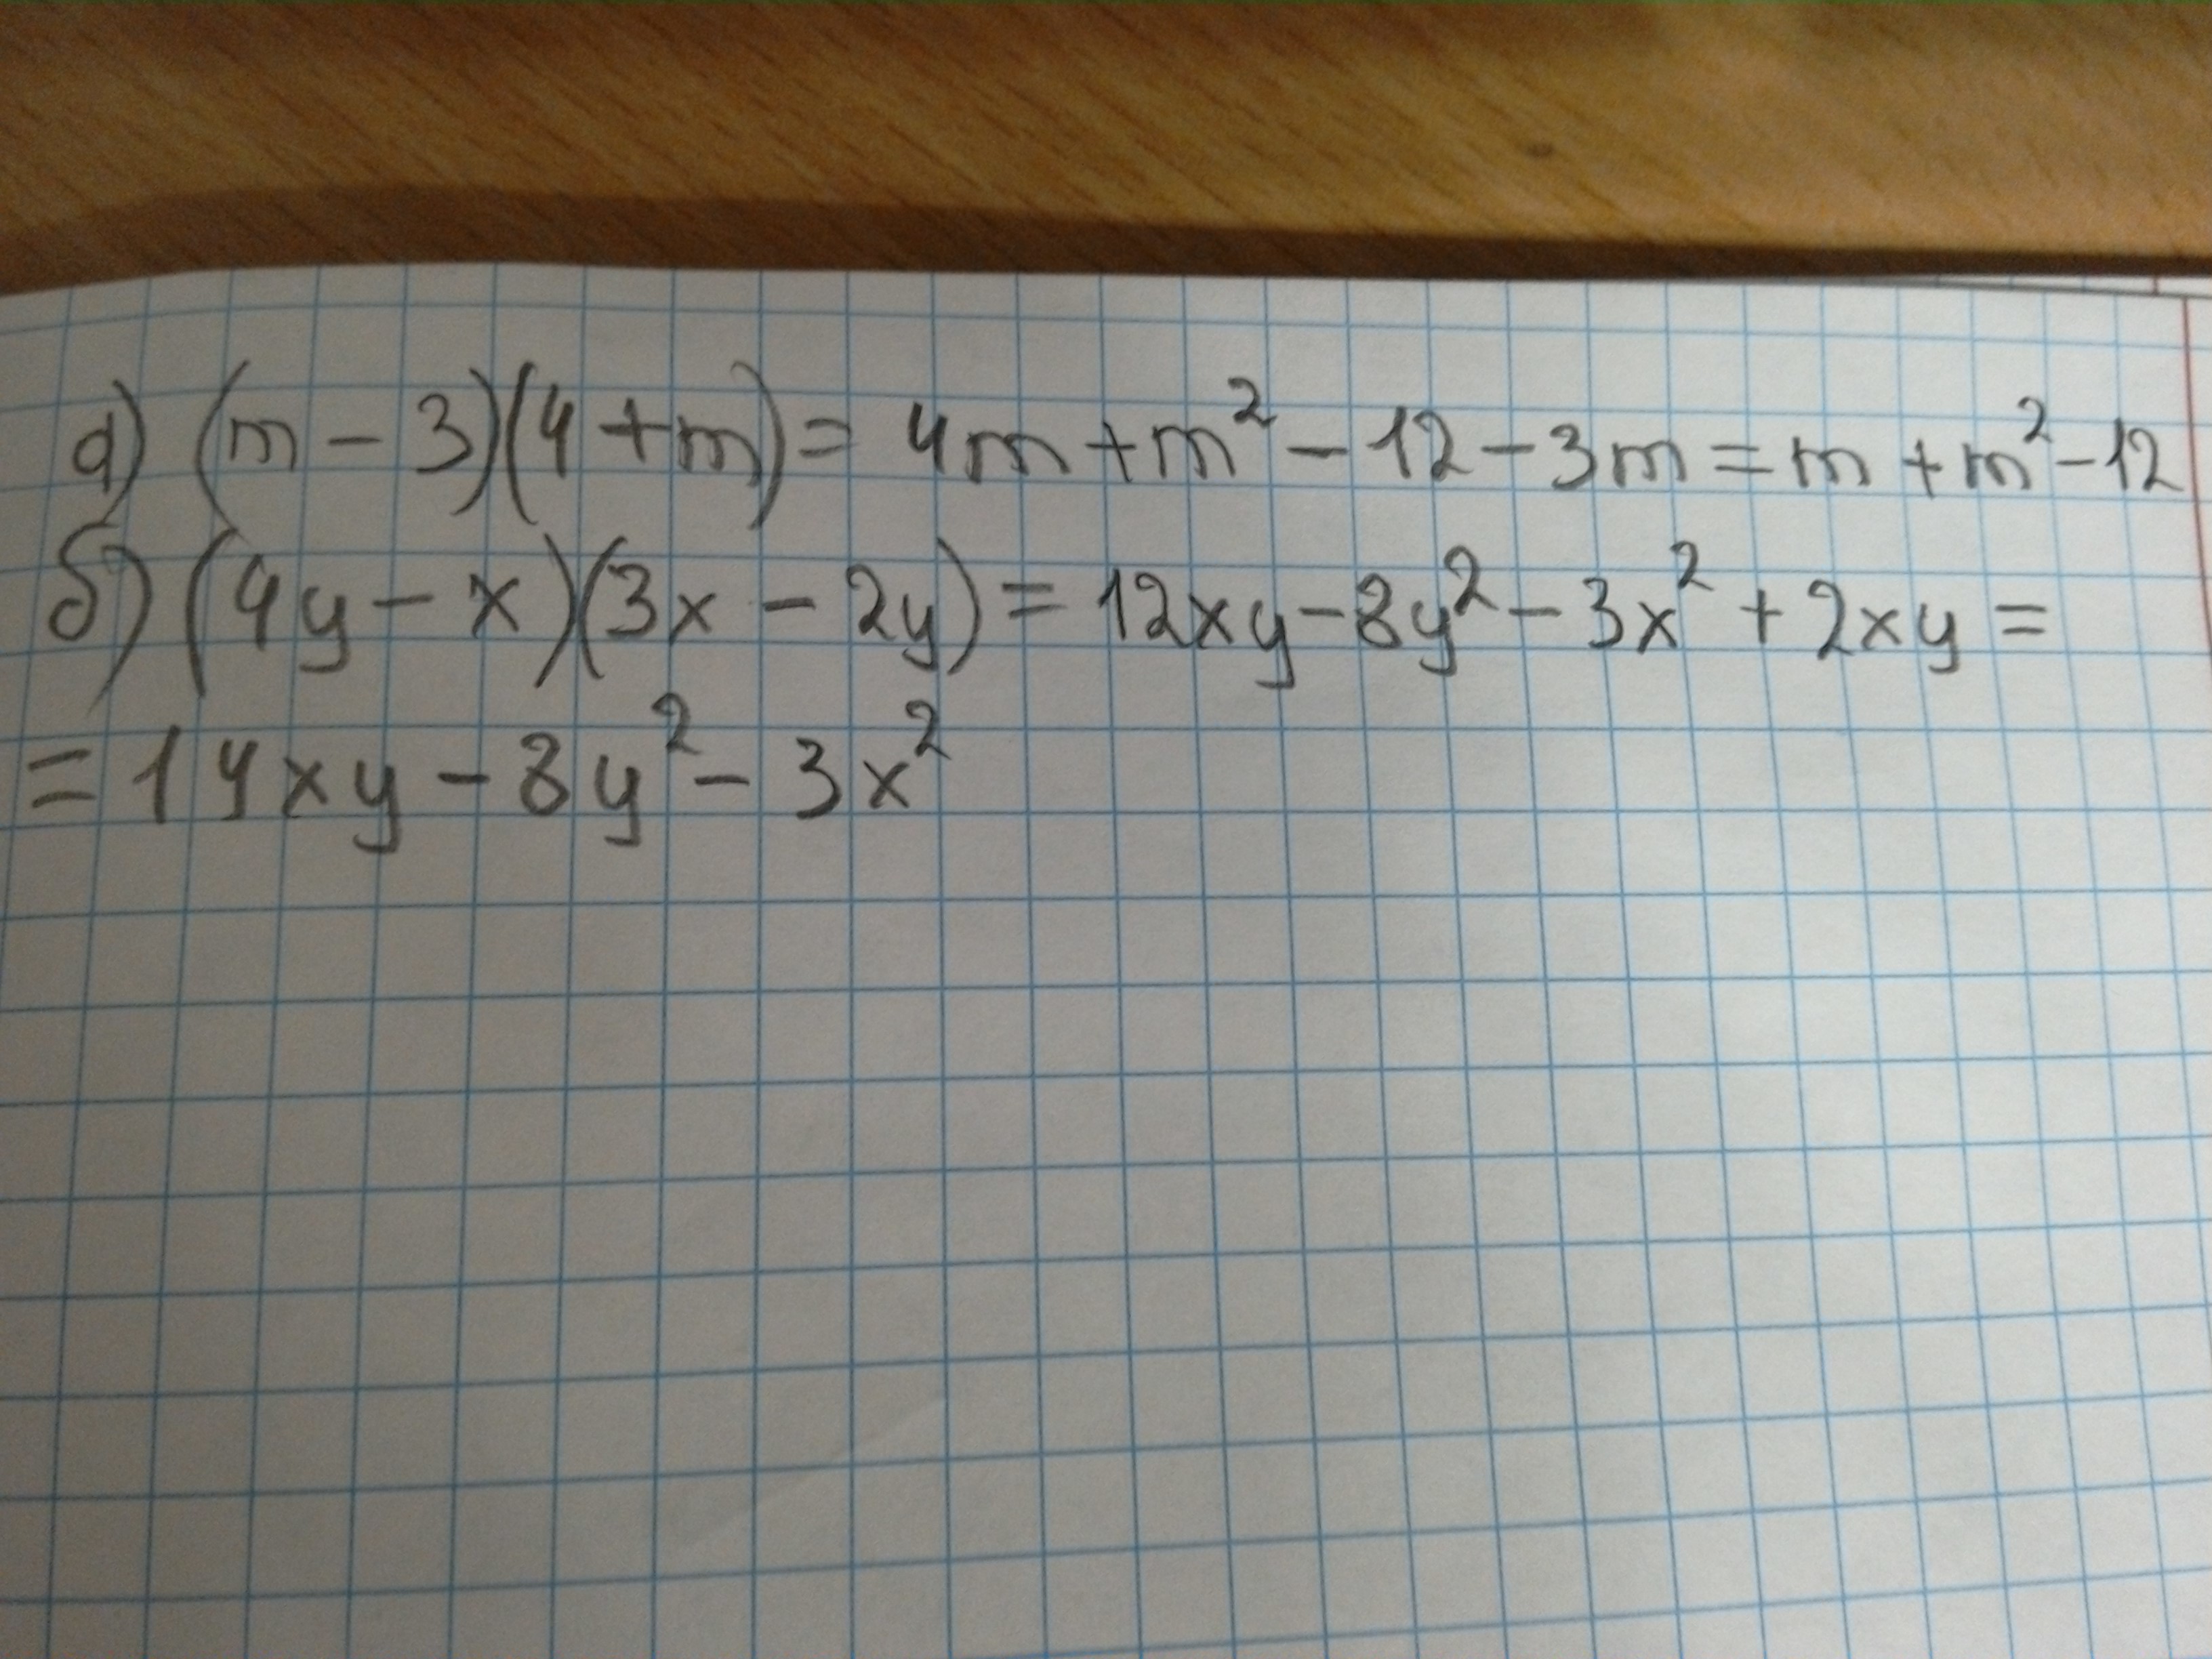 а) (m - 3)(4 + m) = 4m + m² - 12 - 3m = m + m² - 12
б) (4y - x)(3x - 2y) = 12xy - 8y² - 3x² + 2xy =
= 14xy - 8y² - 3x²